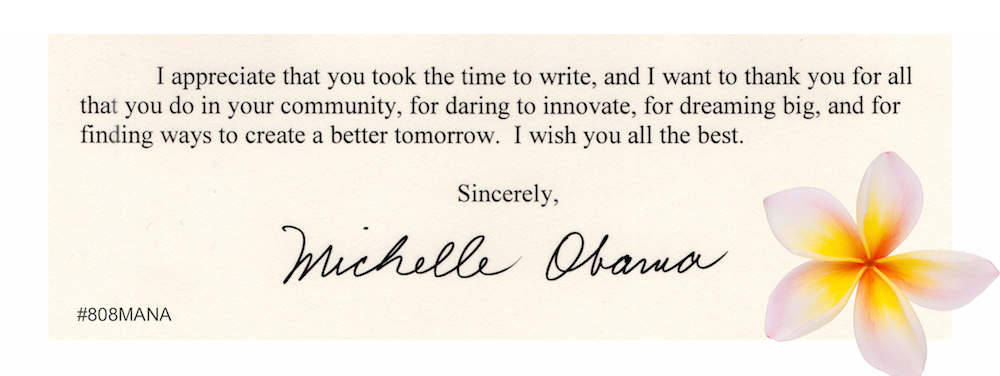 I appreciate that you took the time to write, and I want to thank you for all
that you do in your community, for daring to innovate, for dreaming big, and for
finding ways to create a better tomorrow.  I wish you all the best.
Sincerely,
Michelle Obama
#808MANA